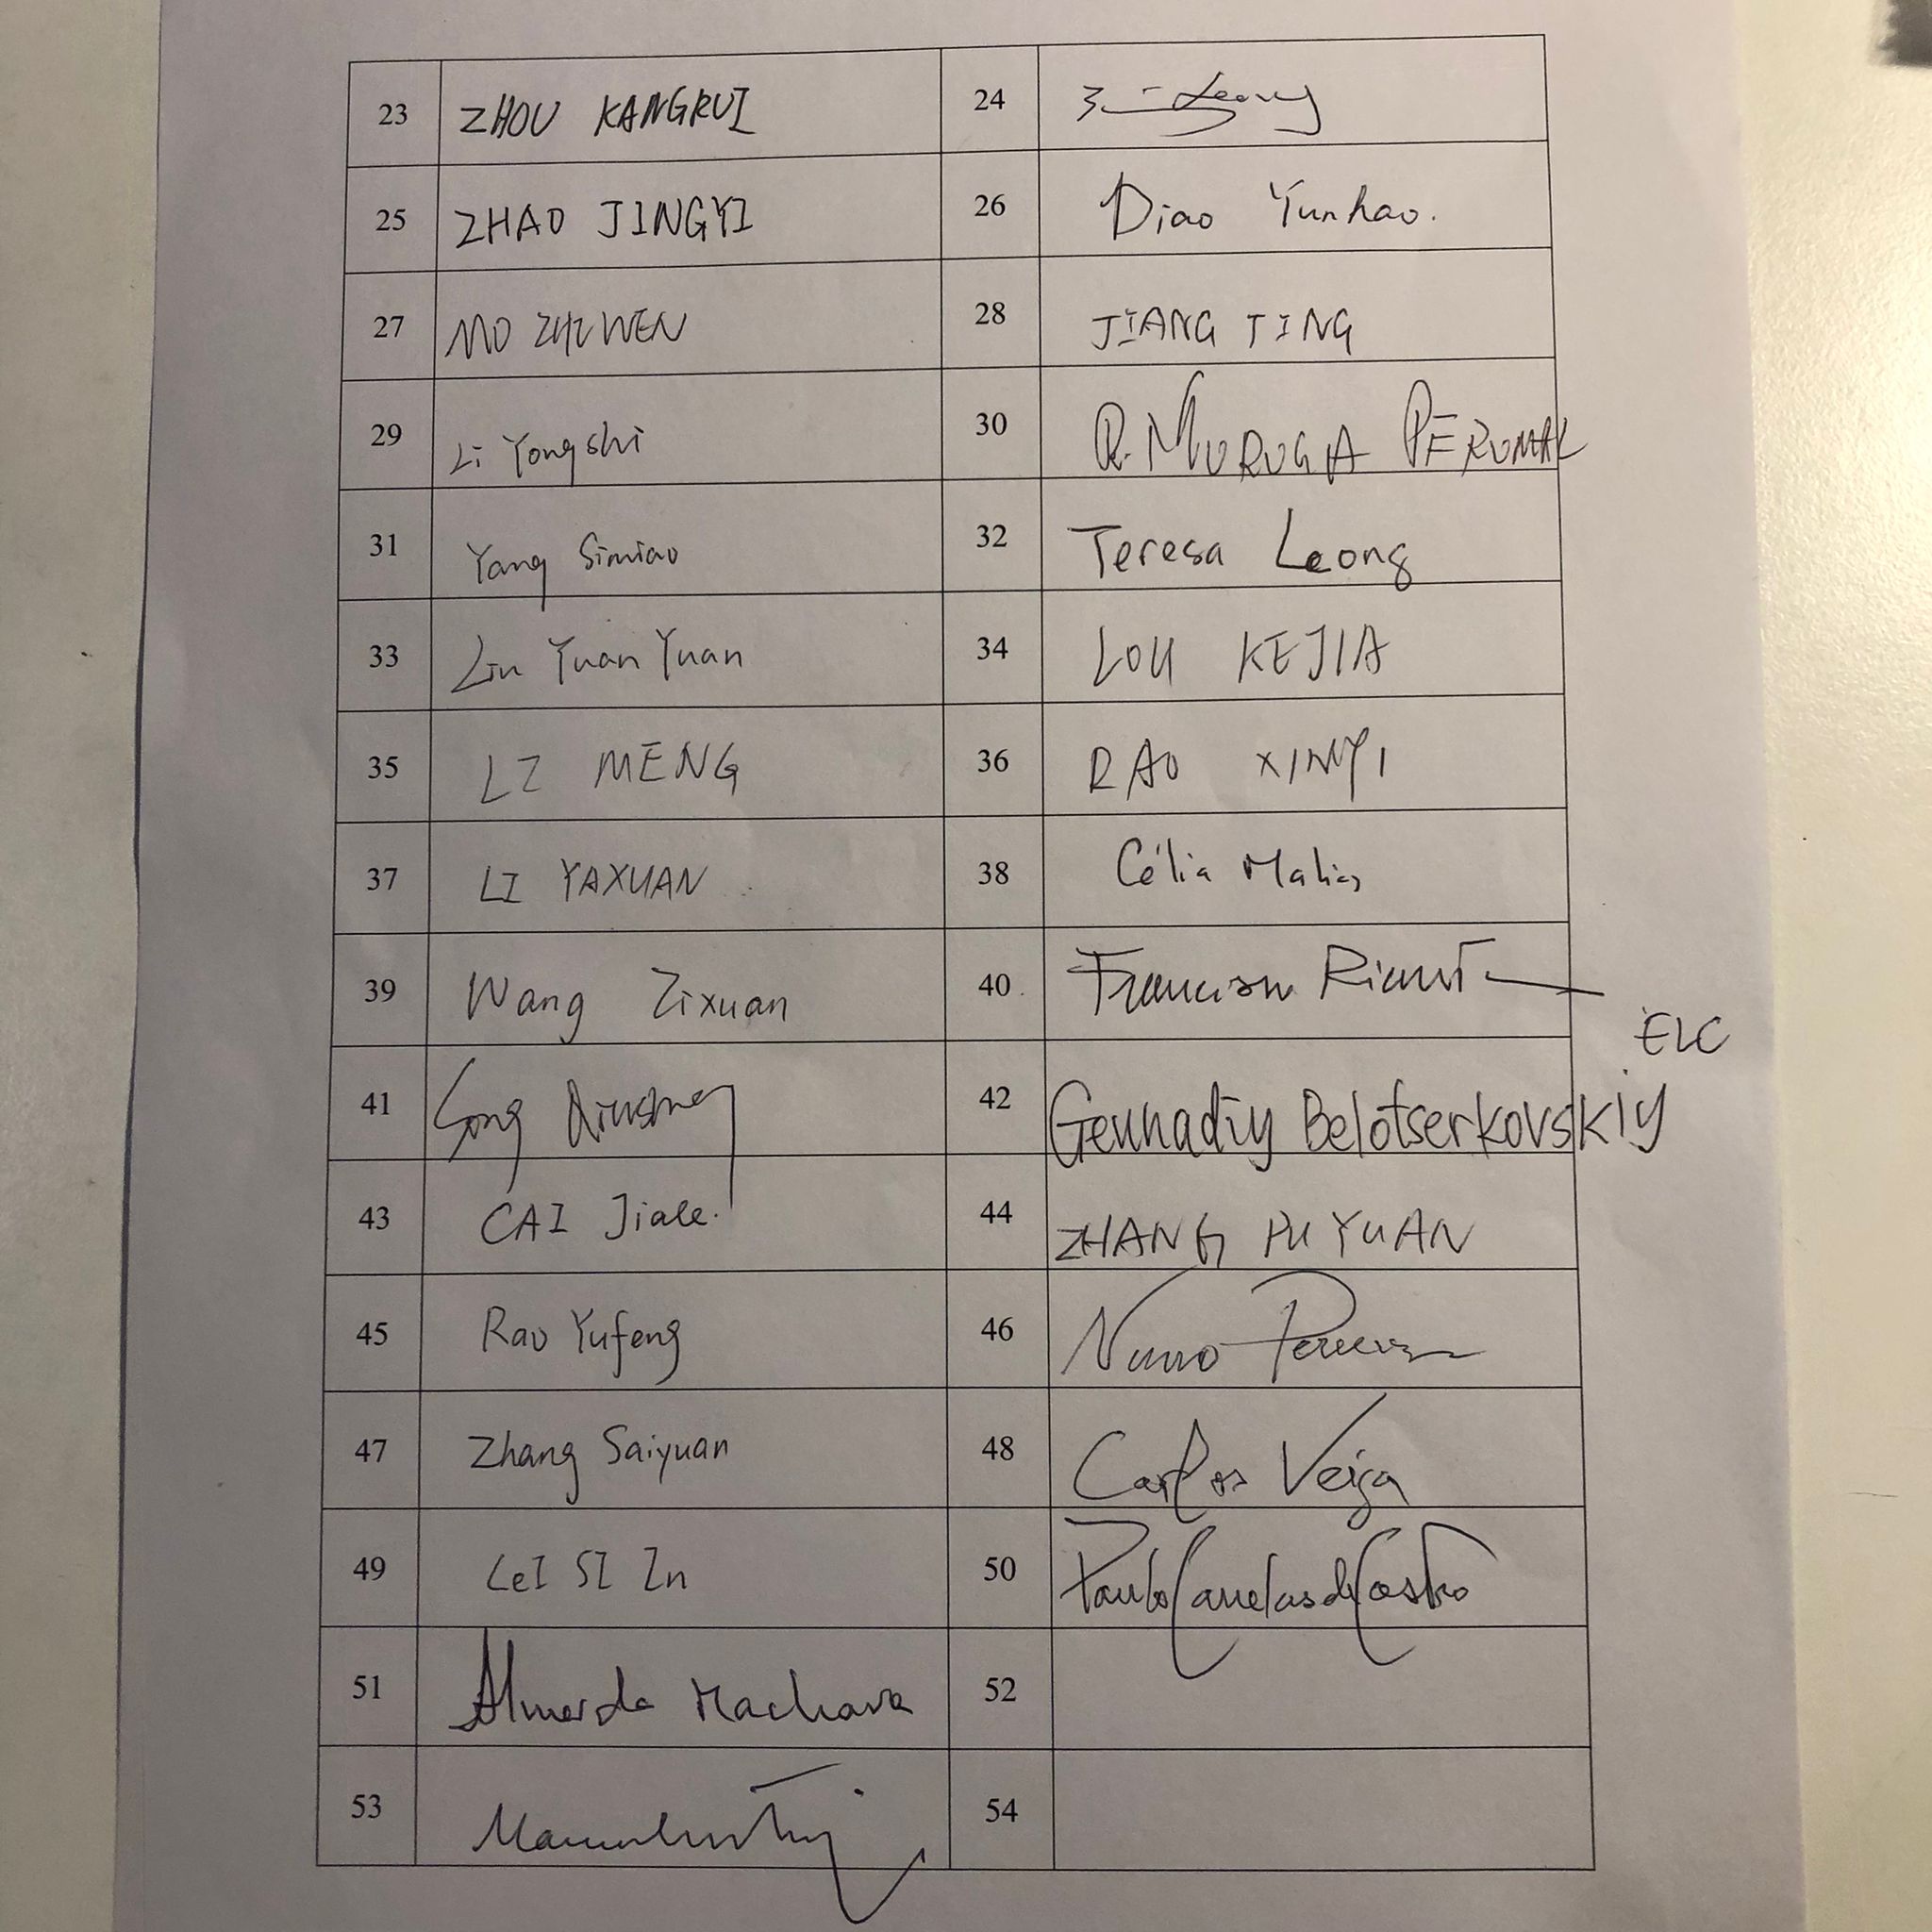 23 ZHOU KANGRUI 24
25 ZHAO JINGYI 26 Diao Yunhao.
27 MO ZHIWEN 28 JIANG TING
29 Li Yongshi 30 R. MURUGA PERUMAL
31 Yang Simiao 32 Teresa Leong
33 Lin Yuan Yuan 34 LOU KEJIA
35 LI MENG 36 RAO XINYI
37 LI YAXUAN 38 Célia
39 Wang Zixuan 40
ELC
41 Song 42 Gennadiy Belotserkovskiy
43 CAI Jiale. 44 ZHANG PU YUAN
45 Rao Yufeng 46 Nuno
47 Zhang Saiyuan 48 Carlos Veiga
49 LeI SI In 50 Paulo Canelas de Castro
51 Almerda Machava 52
53 54